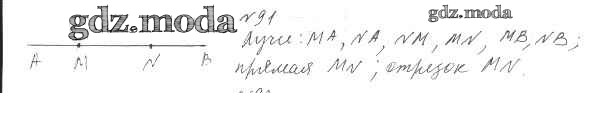 gdz.moda
gdz.moda
№91
Лучи: MA, NA, NM, MN, MB, NB;
A M N B
прямая MN; отрезок MN.